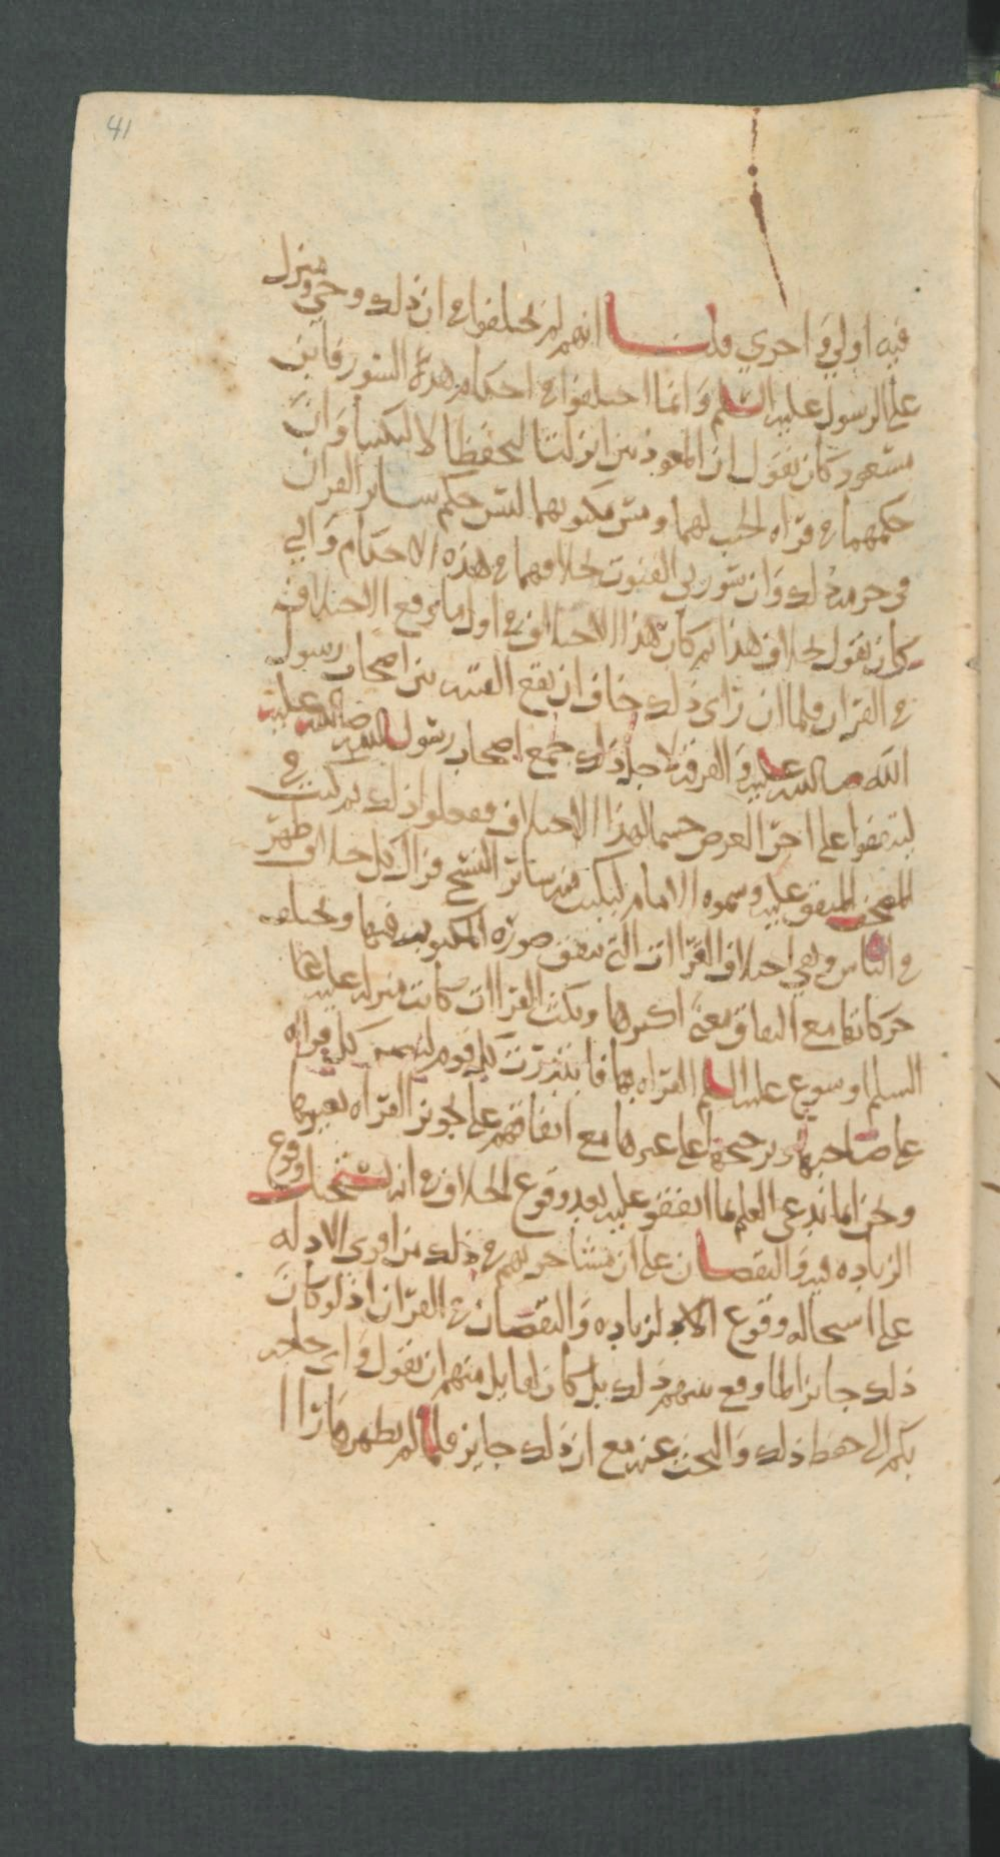 41
فيه اولي واحري قلنا انهم لم يختلفوا في ان ذلك وحي منزل
على الرسول عليه السلم وانما اختلفوا في احكام هذه السور فابن
مسعود كان يقول ان المعوذتين انزلتا ليحفظا لا ليكتبا وان
حكمهما في قراه الجنب لهما ومس مكتوبهما ليس حكم ساير القران
في حرمه ذلك وان سورتي القنوت بخلافهما في هذه الاحكام وابي
كان يقول بخلاف هذا ثم كان هذا الاختلاف في اول ما وقع الاختلاف
في القران فلما ان راى ذلك خاف ان تقع الفتنه بين اصحاب رسول
الله صلى الله عليه والفرقه لاجل ذلك جمع اصحاب رسول الله صلى الله عليه
ليتفقوا على اخر العرض حسما لهذا الاختلاف ففعلوا ذلك ثم كتب في
المصحف المتفق عليه وسموه الامام ليكتب منه سائر النسخ فزال كل خلاف ظهر
في الناس وبقي اختلاف القراات التي تتفق صوره المكتوب فيها وتختلف
حركاتها مع اتفاق معنى اكثرها وتلك القراات كانت منزله عليه
السلم وسوغ عليه السلم القراه بها فابتدرت كل قوم كل قراه
على صاحبها وترجيحها على غيرها مع اتفاقهم على تجويز القراه بغيرها
ونحن انما ندعي العلم بما اتفقو عليه بعد وقوع الخلاف في انه يستحيل وقوع
الزياده فيه والنقصان على ان مشاجرتهم في ذلك من اقوى الادله
على استحاله وقوع الزياده والنقصان في القران اذ لو كان
ذلك جايزا لما وقع بينهم ذلك بل كان لقايل منهم ان يقول واي حاجه
بكم الى حفظ ذلك والبحث عنه مع ان ذلك جايز فلما لم يظهر هذا